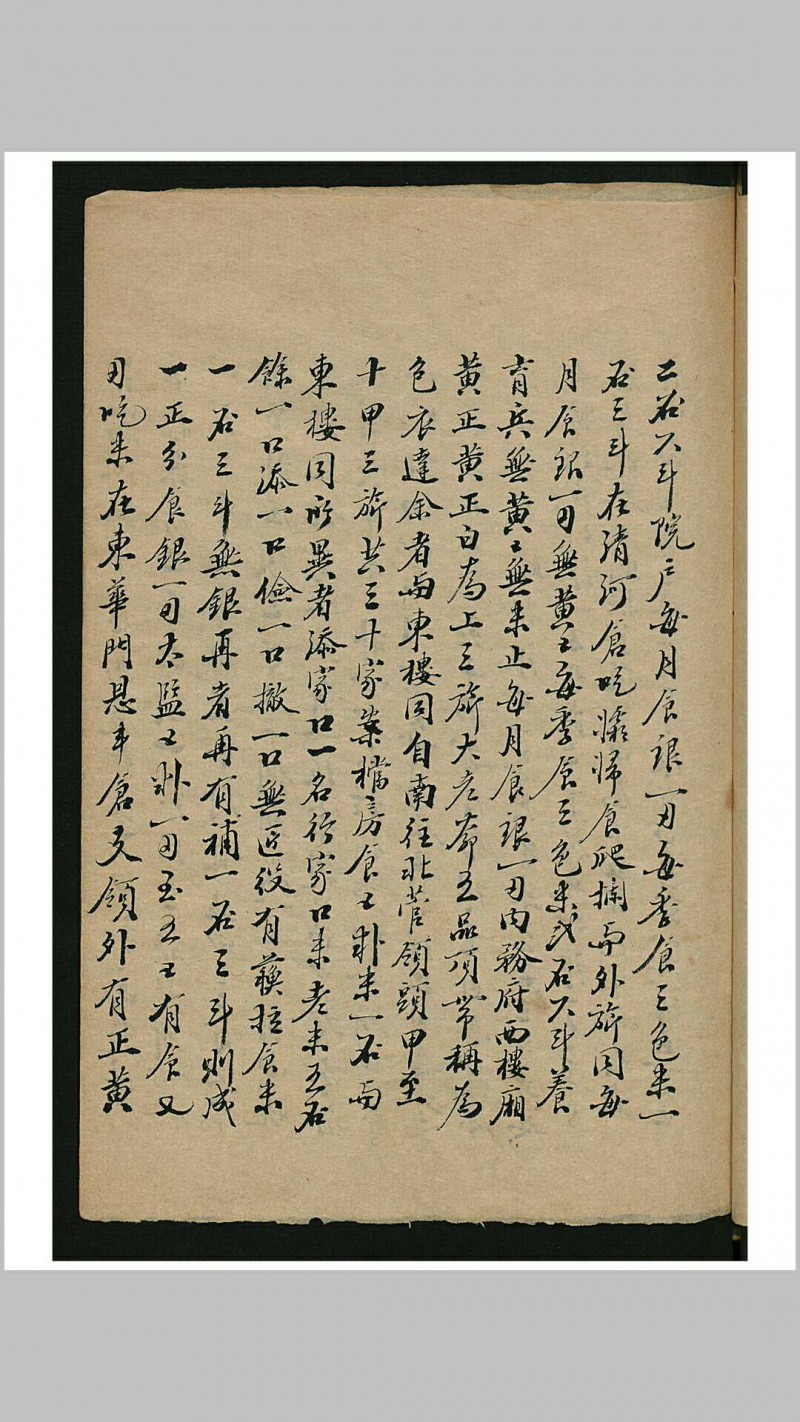 二石六斗院戶每月食銀一两每季食三色米一
石三斗在清河倉吃 歸食爬 而外旂同每
月食銀一两無黃工每季食三色米弍石六斗養
育兵無黃工無米止每月食銀一两内務府西樓廂
黃正黃正白為上三旂大老爺五品頂帶稱為
色衣達余者與東樓同自南往北管領頭甲至
十甲三旂共三十家業檔房食工 米一石與
東樓同所異者添家口一名行家口米老米五石
餘一口添一口儉一口撤一口無匠役有蘓拉食米
一石三斗無銀再者再有補一石三斗則成
一正分食銀一两太監工 一两至五工有食又
两吃米在東華門恩丰倉支領外有正黃